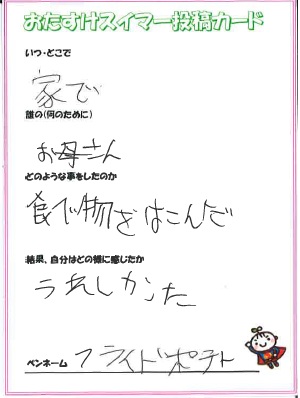 おたすけスイマー投稿カード
いつ・どこで
家で
誰の(何のために)
お母さん
どのような事をしたのか
食べ物をはこんだ
結果、自分はどの様に感じたか
うれしかった
ペンネーム フライドポテト